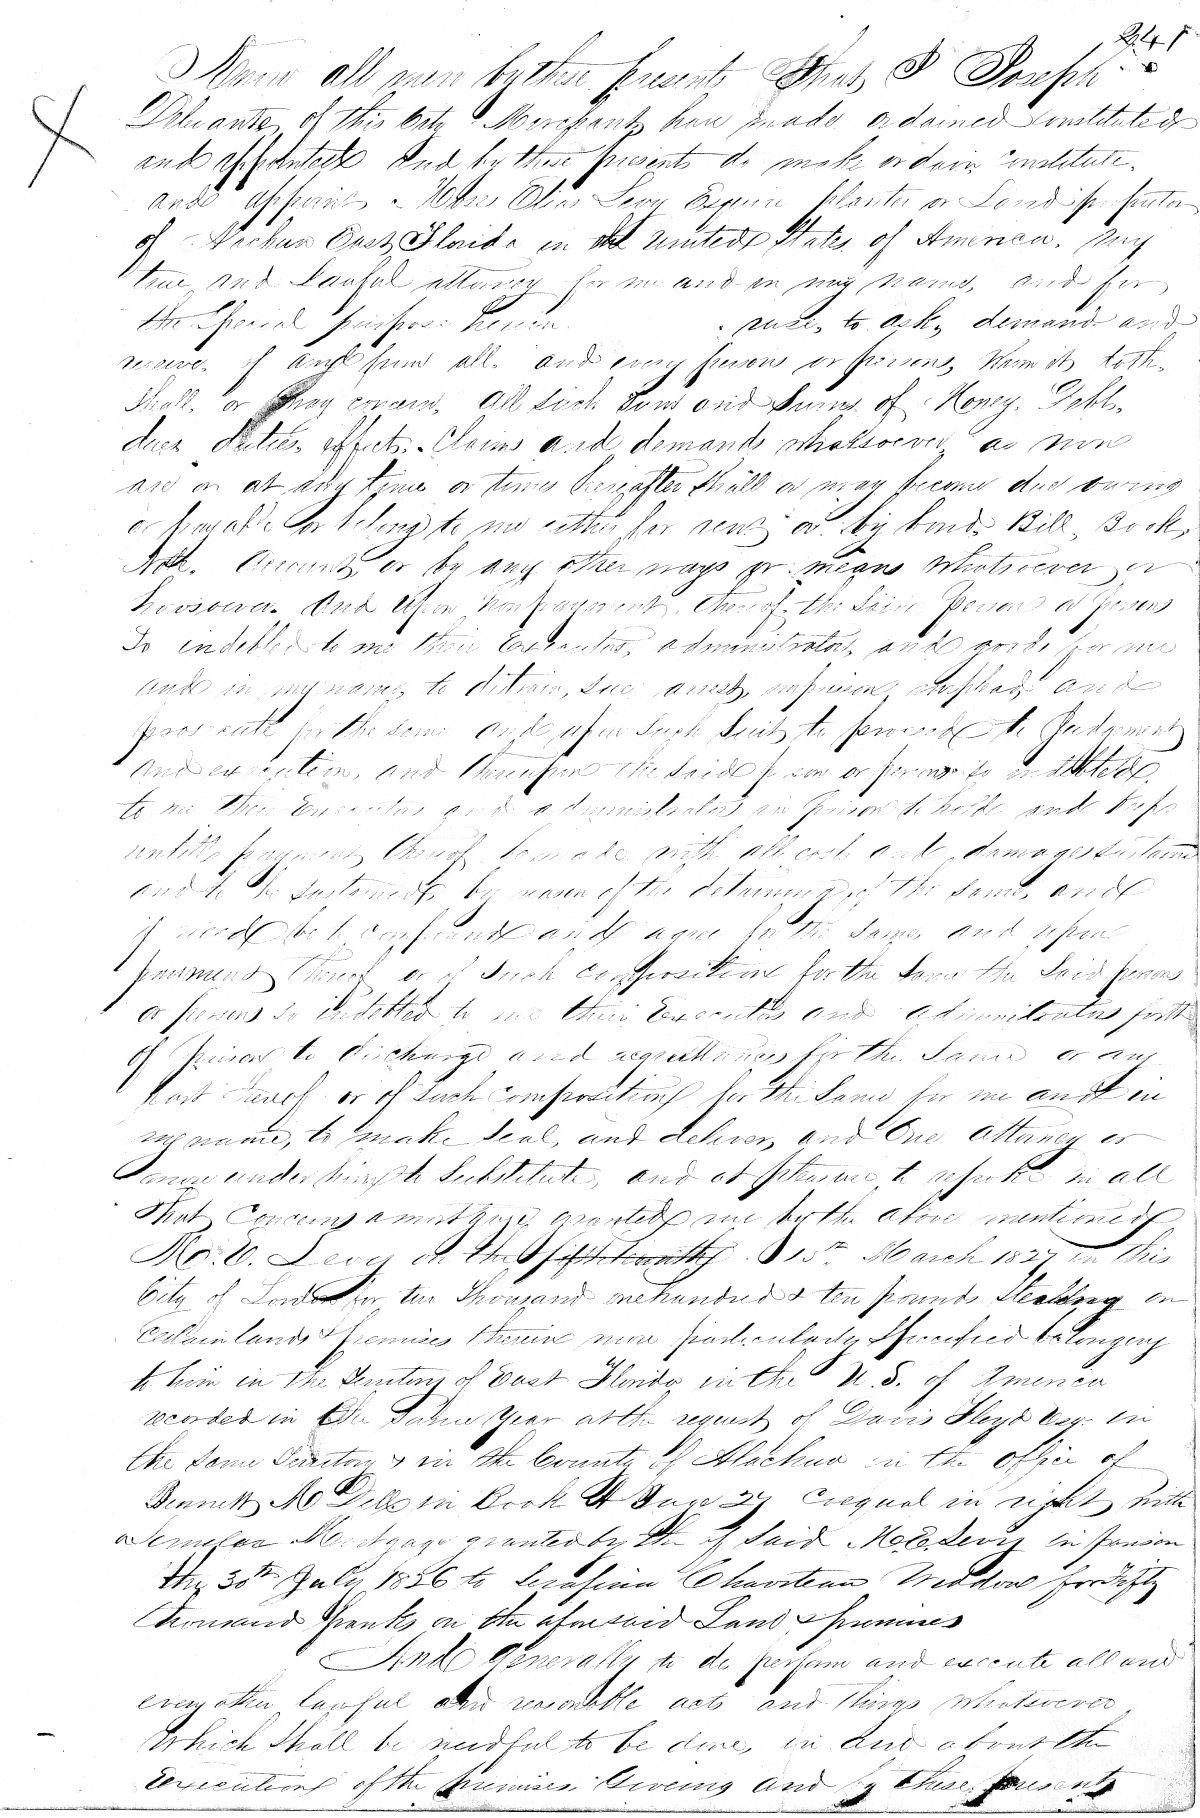 241
Know all men by these presents That I Joseph
of this City Merchant have made ordained constituted
and appointed and by these presents do make ordain constitute
and appoint Moses Elias Levy Esquire planter or Land proprietor
of East Florida in the United States of America. my
true and Lawful attorney for me and in my name, and for
the Special purpose herein use, to ask, demand and
receive of and from all and every persons or persons, whom it doth
Shall, or may concern, all such sum and sums of Money. Debts,
dues duties, effects. Claims and demands whatsoever, as now
are or at any time or times hereafter shall or may become due owing
or payable or belong to me either for rent or by bond, Bill, Book,
Note. Account, or by any other ways or means whatsoever or
howsoever. And upon nonpayment thereof. the said person or persons
So indebted to me their Executors, administrators, and goods for me
and in my name, to distrain, sue arrest, imprison, and
prosecute for the same and upon such suit, to proceed to Judgement
and execution, and thereupon the said person or persons so indebted
to me their Executors and administrators in prison to hold and keep
untill payment thereof be made with all cost and damages sustained
and to be sustained by reason of the detaining of the same, and
if need be to compound and agree for the same, and upon
payment thereof or of such composition for the same the said persons
or persons so indebted to me their Executors and administrators forth
of prison to discharge and acquittances for the same or any
part thereof or of such composition for the same for me and in
my name, to make seal, and deliver, and One attorney or
more under him to substitute, and at pleasure to revoke in all
that concerns a mortgage granted me by the above mentioned
M. E. Levy on the 15th March 1827 in this
City of London for two thousand one hundred & ten pounds Sterling on
certain lands & premises therein more particularly specified belonging
to him in the Territory of East Florida in the U. S. of America
recorded in the same year at the request of Davis Floyd Esq. in
the same Territory & in the County of Alachua in the office of
Bennett M Dell in Book A Page 27 Coequal in right with
a Similar Mortgage granted by the of said M. E. Levy in
the 30th July 1826 to Widdow for Fifty
thousand franks on the aforesaid Land & premises
And generally to do perform and execute all and
every other lawful and reasonable acts and things whatsoever
which shall be needful to be done, in and about the
Execution of the premises Giveing and by these presents